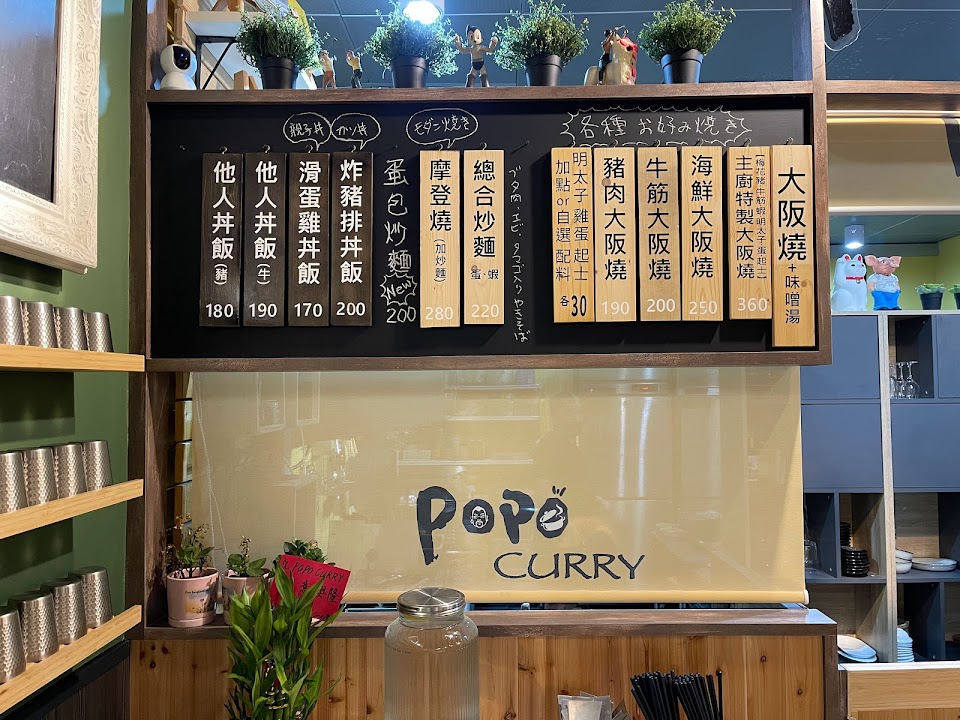 親子丼
カツ丼
モダン焼き
各種 お好み焼き
他人丼飯(豬)
180
他人丼飯(牛)
190
滑蛋雞丼飯
170
炸豬排丼飯
200
蛋包炒麵
New
200
摩登燒(加炒麵)
280
總合炒麵
蛋、蝦
220
ブタ肉、エビ、タマゴ入りやきそば
明太子 雞蛋 起士
加點or自選 配料
各30
豬肉大阪燒
190
牛筋大阪燒
200
海鮮大阪燒
250
[梅花豬 牛筋 蝦 明太子 蛋 起士]
主廚特製大阪燒
360
大阪燒+味噌湯
popo
CURRY
POPO CURRY